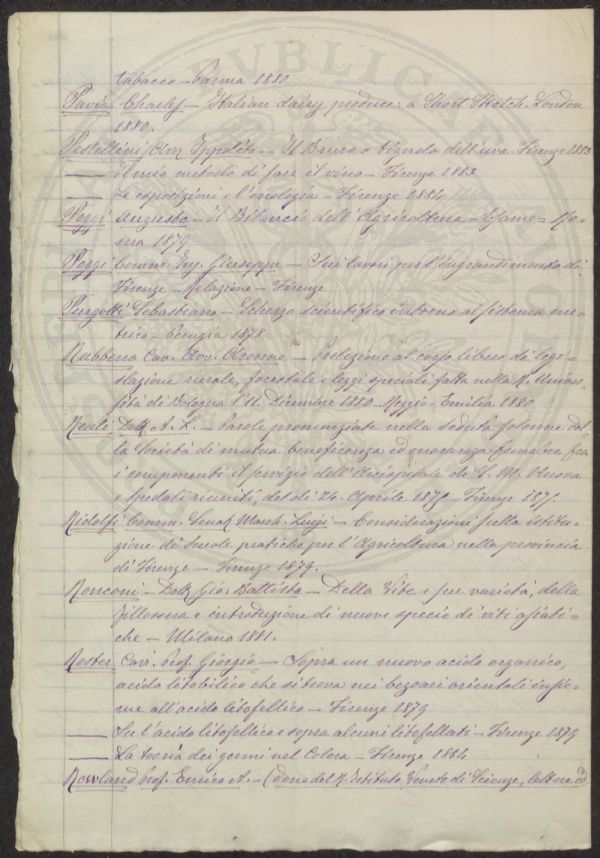 tabacco - Parma 1880
Pavin Charles - Italian dairy produce: a Short Sketch. London
1880.
Pestellini Ippolito - Il Bianco o dell'uva - Firenze 1882
- Il mio metodo di fare il vino - Firenze 1883
- Le esposizioni e l'enologia - Firenze 1884
Poggi Augusto - Il Bilancio dell'Agricoltura - Esame - Ro=
ma 1879
Poggi Comm. Ing. Giuseppe - Sui lavori per l'ingrandimento di
Firenze - Relazione - Firenze
Purgotti Sebastiano - Scherzo scientifico intorno al sistema me=
trico - Perugia 1878
Rabbeno Cav. Avv. Aronne - Prelezione al corso libero di legi=
slazione rurale, forestale e leggi speciali fatta nella R. Univer=
sità di Bologna l'11. Dicembre 1880 - Reggio-Emilia 1880
Reali Dott. A. Z. - Parole pronunziate nella seduta solenne del
la Società di mutua beneficenza ed onoranza funebre fra
i componenti il servizio dell'Arcispedale di S. M. Nuova
e Spedali riuniti, del dì 24. Aprile 1870 - Firenze
Ridolfi Comm. Senat. March. Luigi - Considerazioni sulla istitu=
zione di Scuole pratiche per l'Agricoltura nella provincia
di Firenze - Firenze 1879.
Ronconi - Dott. Gio. Battista - Della Vite e sue varietà, della
fillossera e introduzione di nuove specie di viti asiati=
che - Milano 1881.
Roster Cav. Prof. Giorgio - Sopra un nuovo acido organico,
acido litobilico che si trova nei bezoari orientali insie=
me all'acido litofellico - Firenze 1879
- Su l'acido litofellico e sopra alcuni litofellati - Firenze 1879
- La teoria dei germi nel Colera - Firenze 1884
Rowland Prof. Enrico A. - (dono del R. Istituto Veneto di Scienze, lettere ed